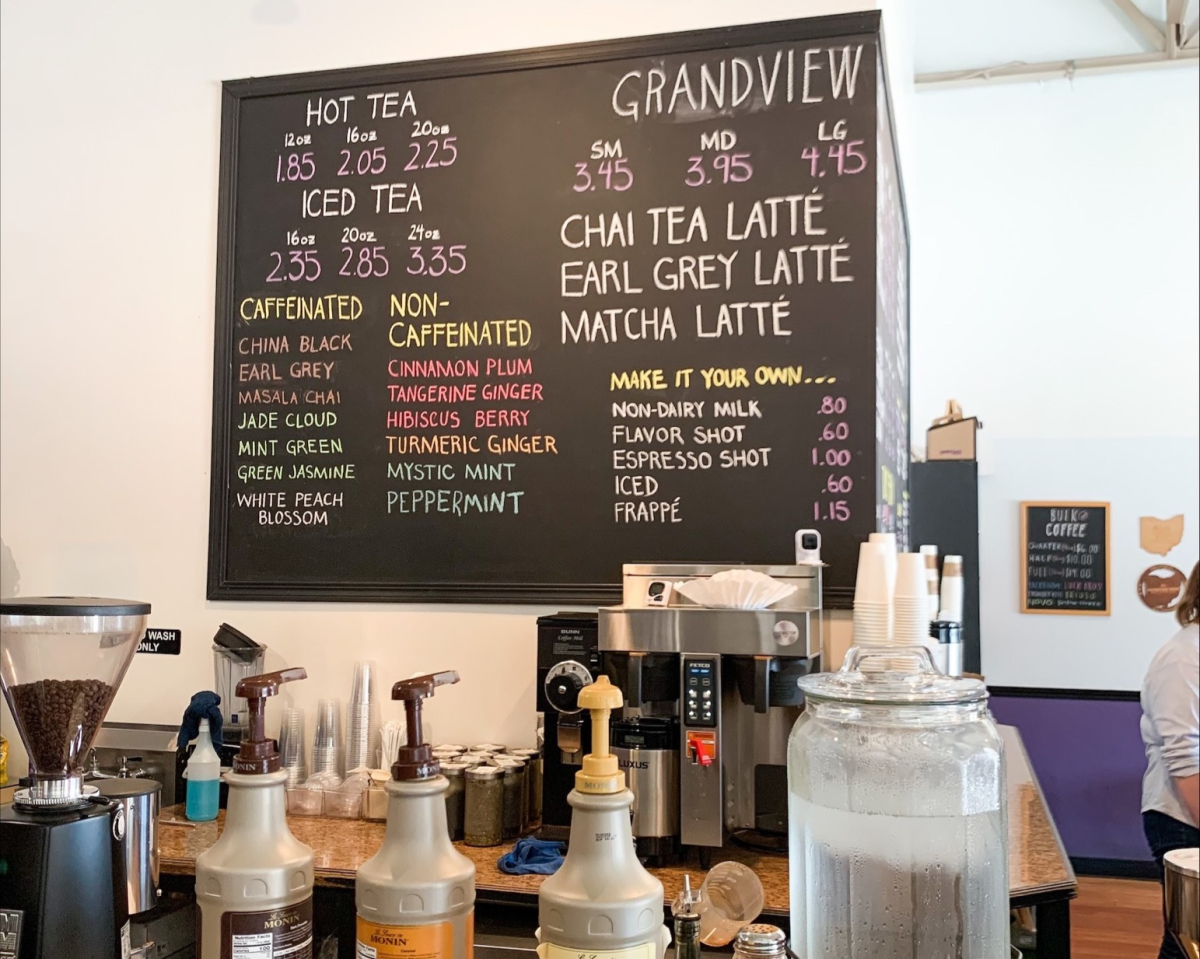 HOT TEA
12oz 16oz 20oz
1.85 2.05 2.25
ICED TEA
16oz 20oz 24oz
2.35 2.85 3.35
CAFFEINATED
CHINA BLACK
EARL GREY
MASALA CHAI
JADE CLOUD
MINT GREEN
GREEN JASMINE
WHITE PEACH
BLOSSOM
NON-
CAFFEINATED
CINNAMON PLUM
TANGERINE GINGER
HIBISCUS BERRY
TURMERIC GINGER
MYSTIC MINT
PEPPERMINT
GRANDVIEW
SM MD LG
3.45 3.95 4.45
CHAI TEA LATTÉ
EARL GREY LATTÉ
MATCHA LATTÉ
MAKE IT YOUR OWN...
NON-DAIRY MILK .80
FLAVOR SHOT .60
ESPRESSO SHOT 1.00
ICED .60
FRAPPÉ 1.15
BULK
COFFEE
WASH
ONLY
BUNN
FETCO
LUXUS
MONIN
MONIN
Nutrition Facts